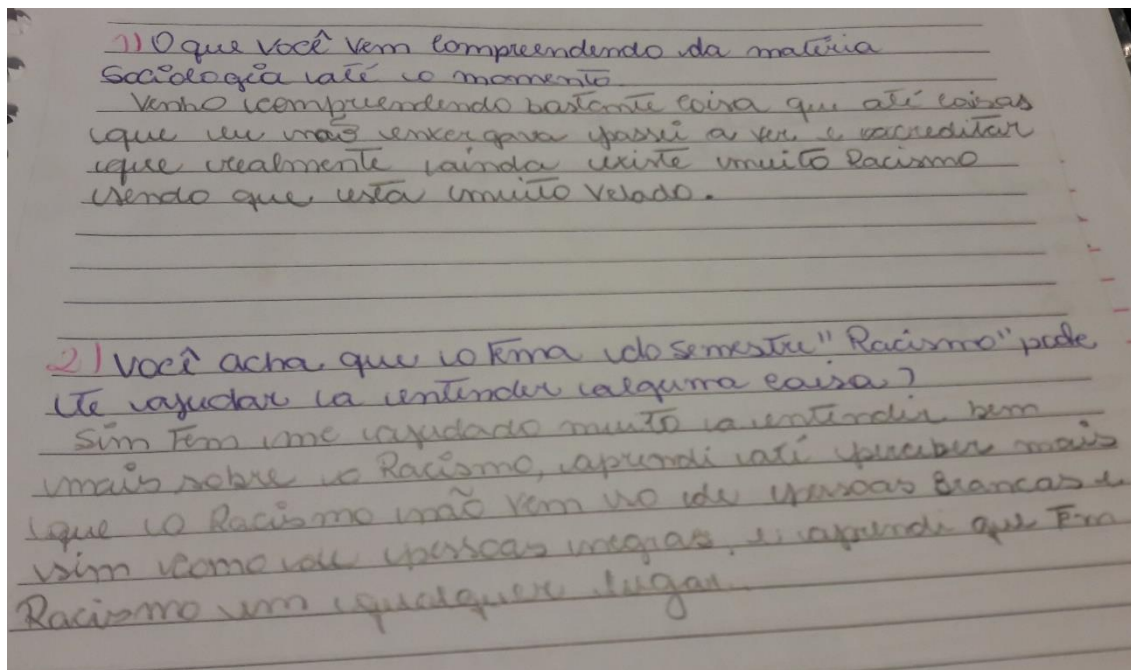 1) O que você vem compreendendo da matéria
Sociologia até o momento
Venho compreendendo bastante coisa que até coisas
que eu não enxergava passei a ver e acreditar
que realmente ainda existe muito Racismo
sendo que está muito velado.
2) Você acha que o tema do semestre "Racismo" pode
te ajudar a entender alguma coisa?
Sim tem me ajudado muito a entender bem
mais sobre o Racismo, aprendi até perceber mais
que o Racismo não vem só de pessoas Brancas e
sim como de pessoas negras, e aprendi que tem
Racismo em qualquer lugar.